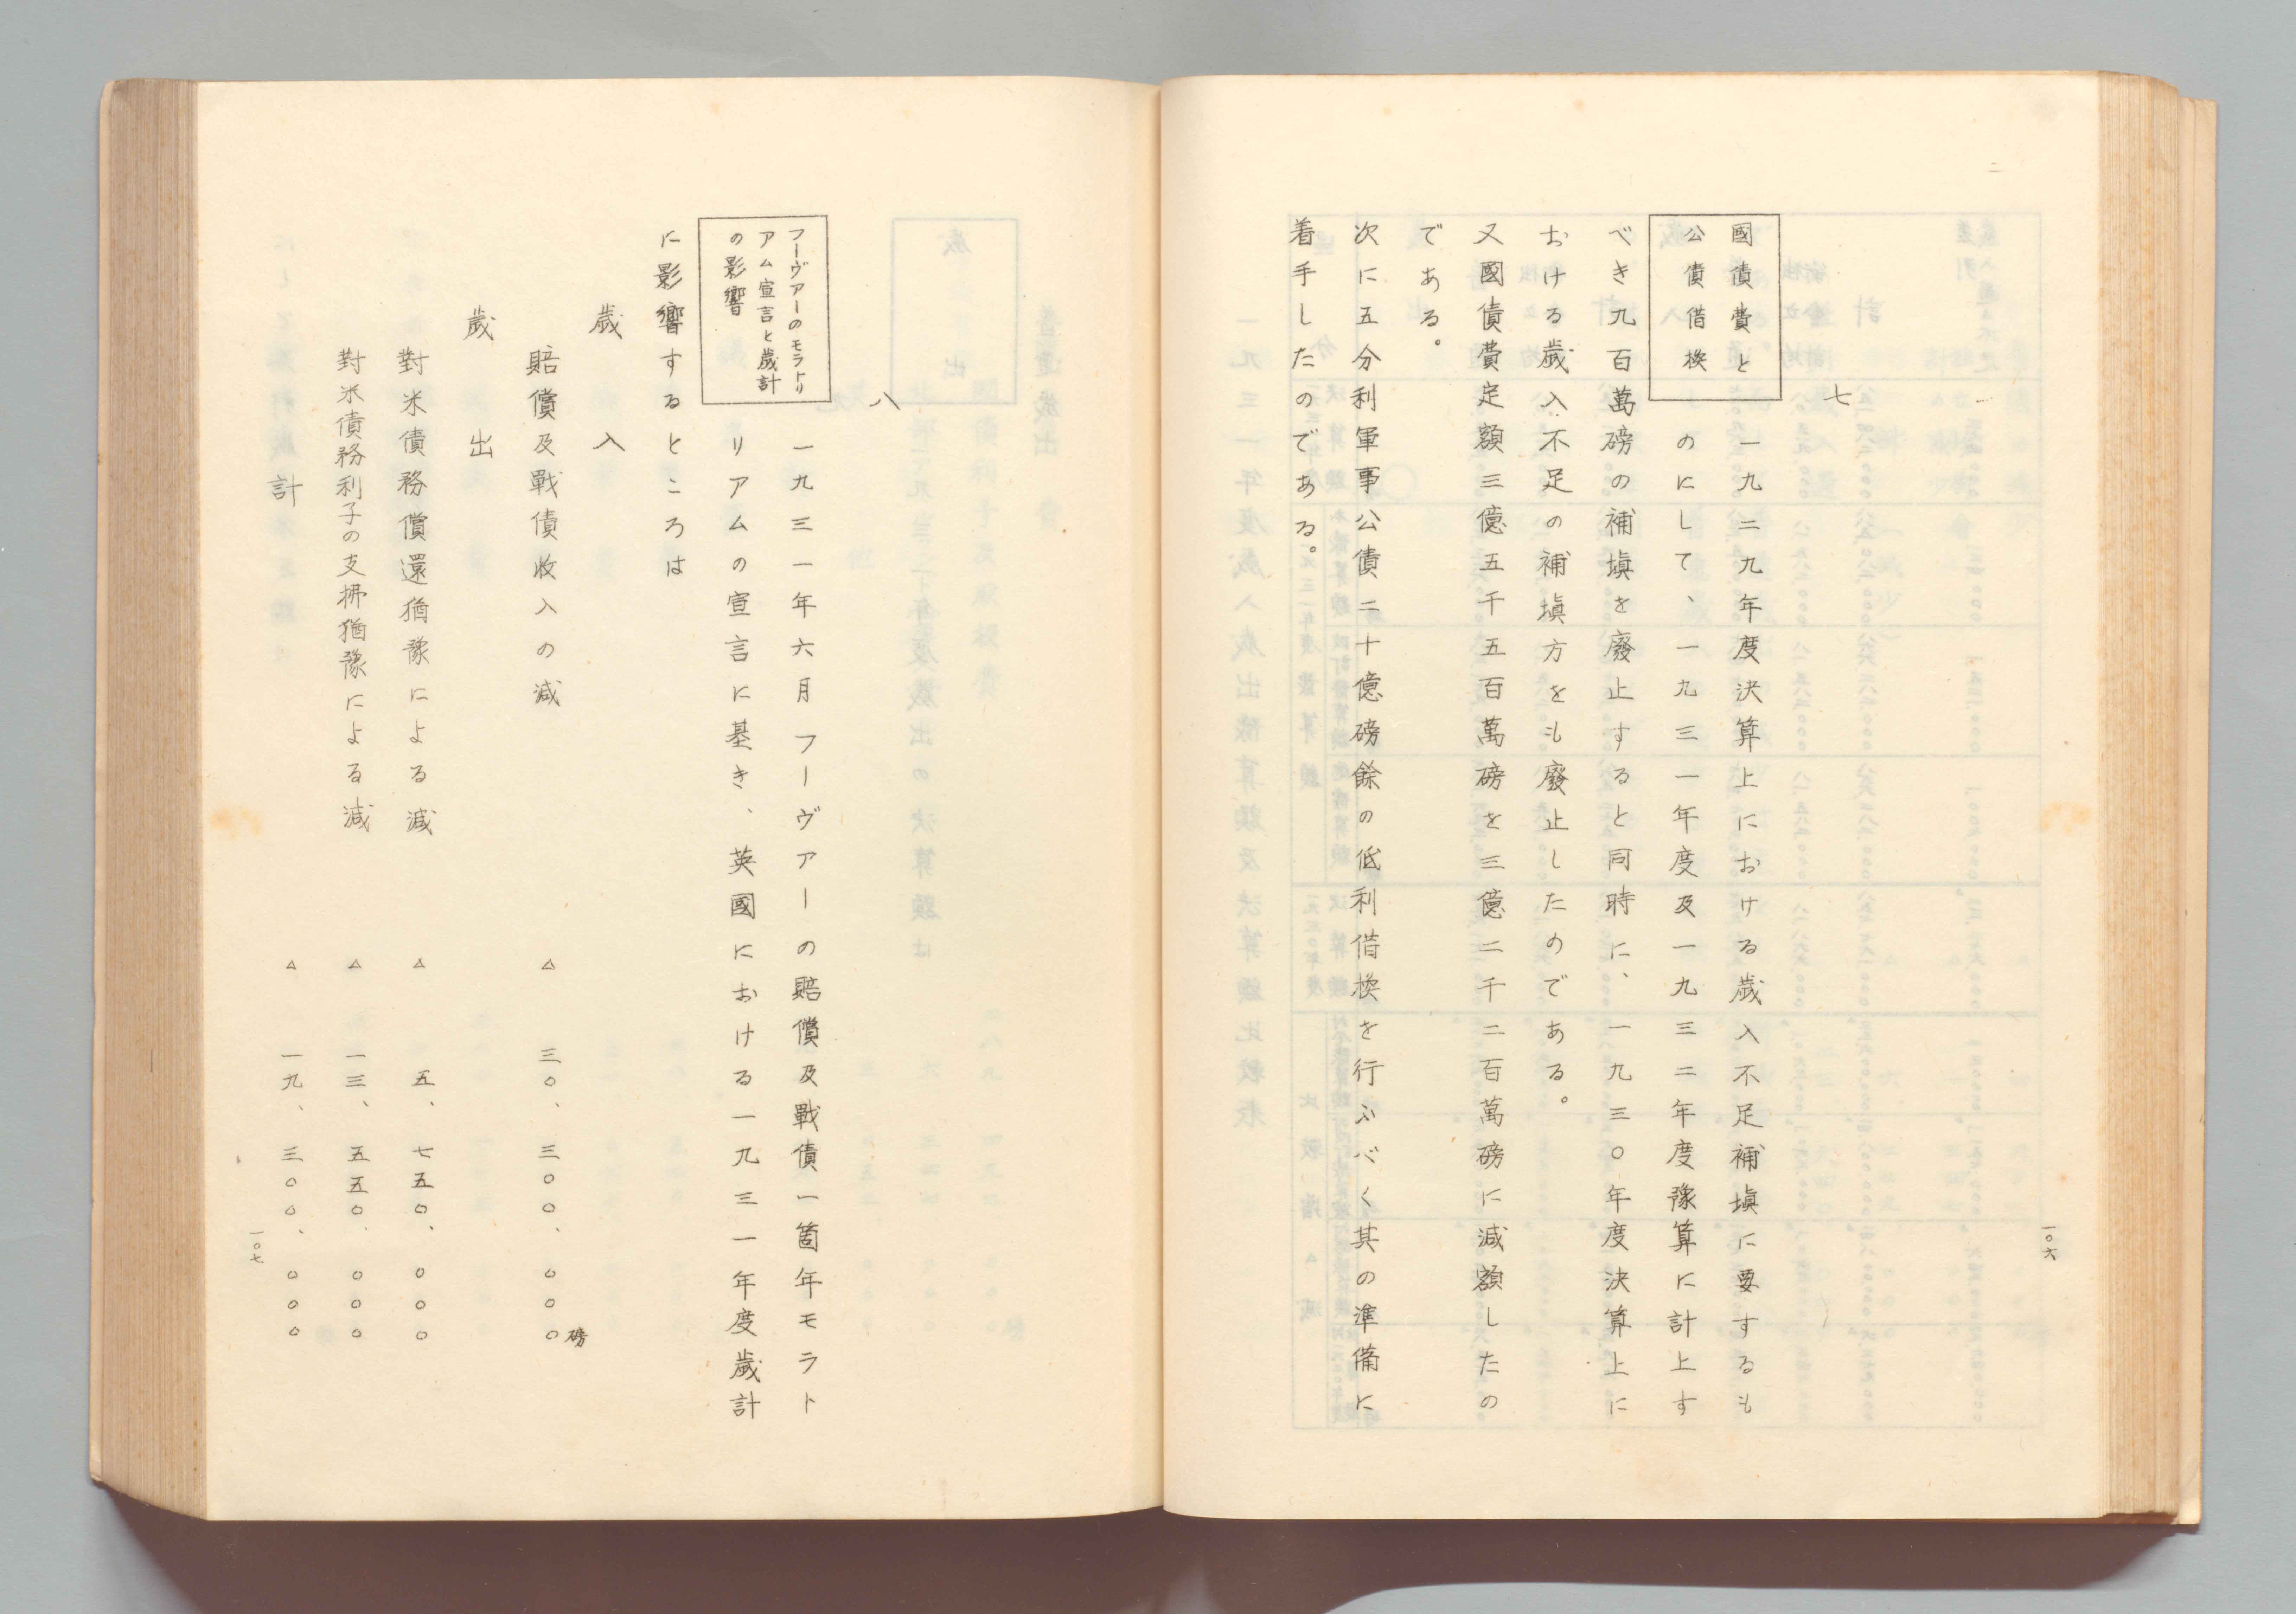 七
國債費と
公債借換
一九二九年度決算上における歳入不足補塡に要するも
のにして、一九三一年度及一九三二年度豫算に計上す
べき九百萬磅の補塡を廢止すると同時に、一九三〇年度決算上に
おける歳入不足の補塡方をも廢止したのである。
又國債費定額三億五千五百萬磅を三億二千二百萬磅に減額したの
である。
次に五分利軍事公債二十億磅餘の低利借換を行ふべく其の準備に
着手したのである。
一〇六
八
フーヴアーのモラトリ
アム宣言と歲計
の影響
一九三一年六月フーヴアーの賠償及戰債一箇年モラト
リアムの宣言に基き、英國における一九三一年度歲計
に影響するところは
歲入
賠償及戰債收入の減 △ 三〇、三〇〇、〇〇〇磅
歲出
對米債務償還猶豫による減 △ 五、七五〇、〇〇〇
對米債務利子の支拂猶豫による減 △ 一三、五五〇、〇〇〇
計 △ 一九、三〇〇、〇〇〇
一〇七